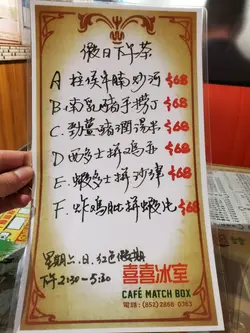 假日下午茶
A 柱侯牛腩炒河 $68
B.南乳豬手撈丁 $68
C.勁薑豬潤湯米 $68
D.西多士拼鸡 $68
E.蝦多士拼沙律 $68
F.炸鸡肶拼蝦片 $68
星期六.日.红色假期
下午2:30-5:30
喜喜冰室
CAFÉ MATCH BOX
電話:(852) 2868 0363